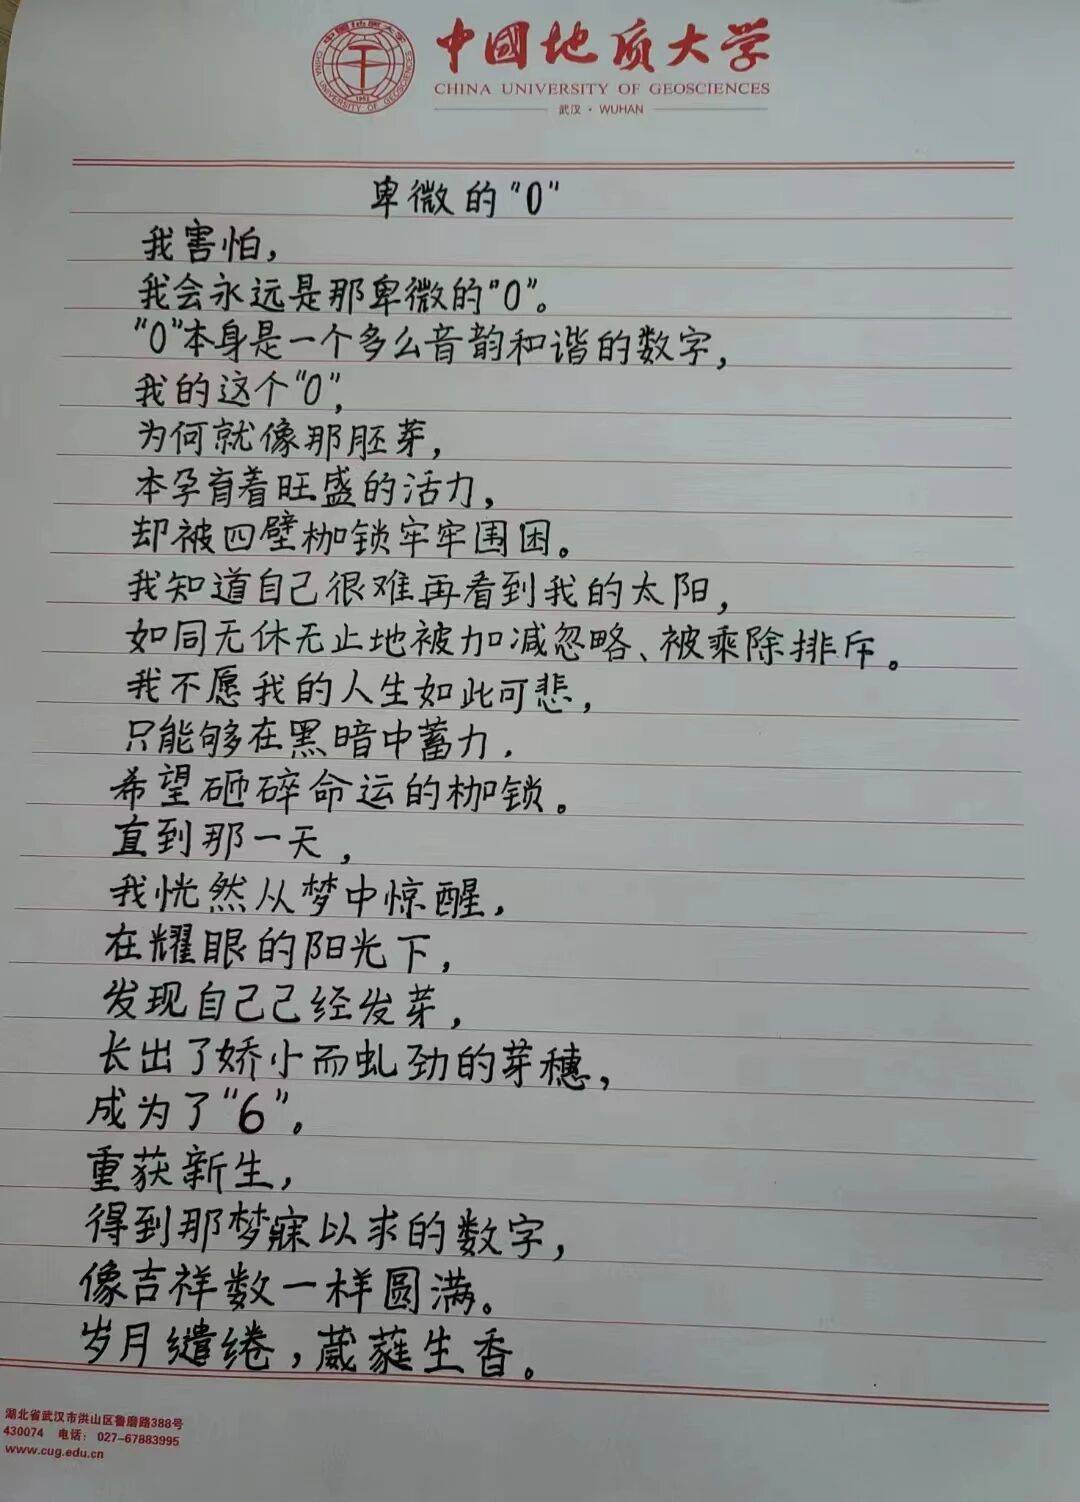 中國地质大学
CHINA UNIVERSITY OF GEOSCIENCES
武汉·WUHAN
卑微的“0”
我害怕，
我会永远是那卑微的“0”。
“0”本身是一个多么音韵和谐的数字，
我的这个“0”，
为何就像那胚芽，
本孕育着旺盛的活力，
却被四壁枷锁牢牢围困。
我知道自己很难再看到我的太阳，
如同无休无止地被加减忽略、被乘除排斥。
我不愿我的人生如此可悲，
只能够在黑暗中蓄力，
希望砸碎命运的枷锁。
直到那一天，
我恍然从梦中惊醒，
在耀眼的阳光下，
发现自己己经发芽，
长出了娇小而虬劲的芽穗，
成为了“6”。
重获新生，
得到那梦寐以求的数字，
像吉祥数一样圆满。
岁月缱绻，葳蕤生香。
湖北省武汉市洪山区鲁磨路388号
430074 电话：027-67883995
www.cug.edu.cn